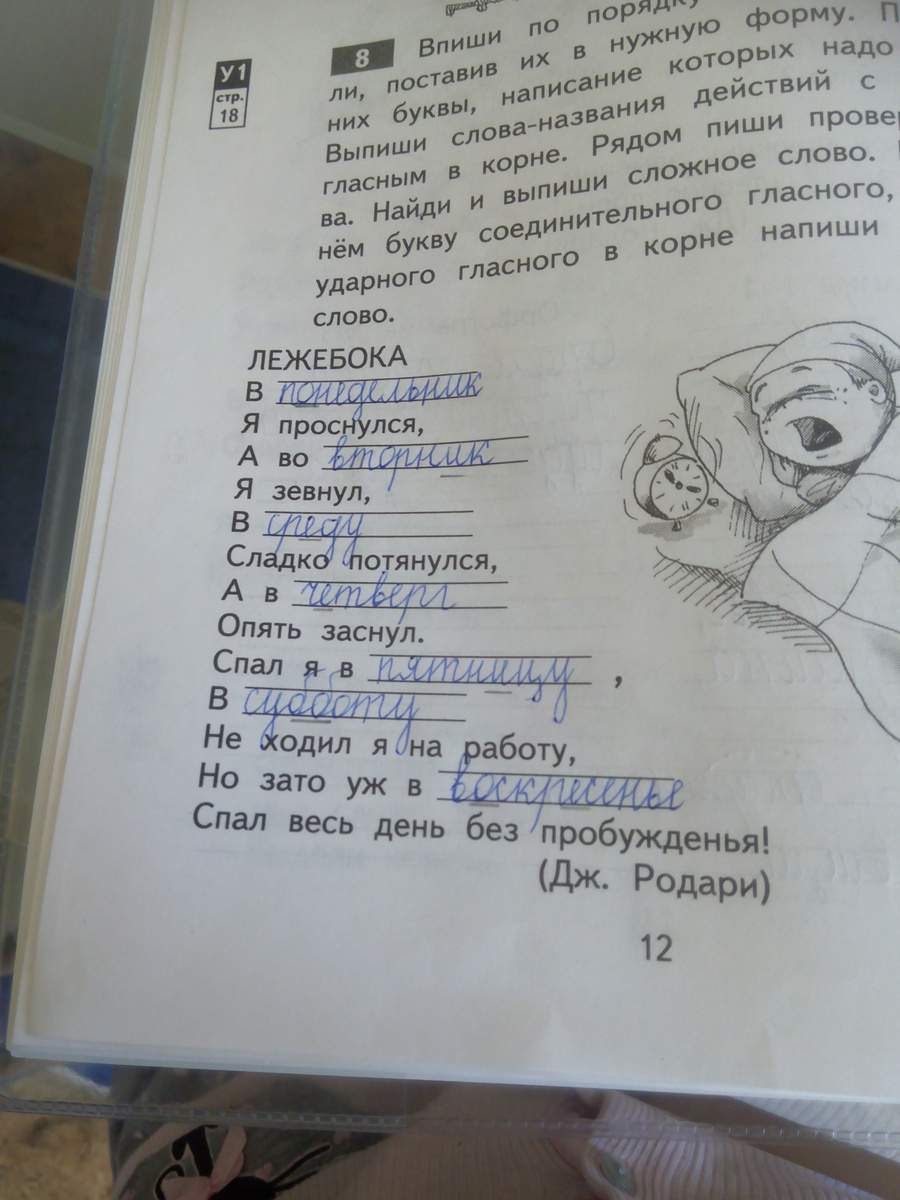 У1
стр.
18
8 Впиши по порядку
ли, поставив их в нужную форму. П
них буквы, написание которых надо
Выпиши слова-названия действий с
гласным в корне. Рядом пиши прове
ва. Найди и выпиши сложное слово.
нём букву соединительного гласного,
ударного гласного в корне напиши
слово.
ЛЕЖЕБОКА
В понедельник
Я проснулся,
А во вторник
Я зевнул,
В среду
Сладко потянулся,
А в четверг
Опять заснул.
Спал я в пятницу ,
В субботу
Не ходил я на работу,
Но зато уж в воскресенье
Спал весь день без пробужденья!
(Дж. Родари)
12